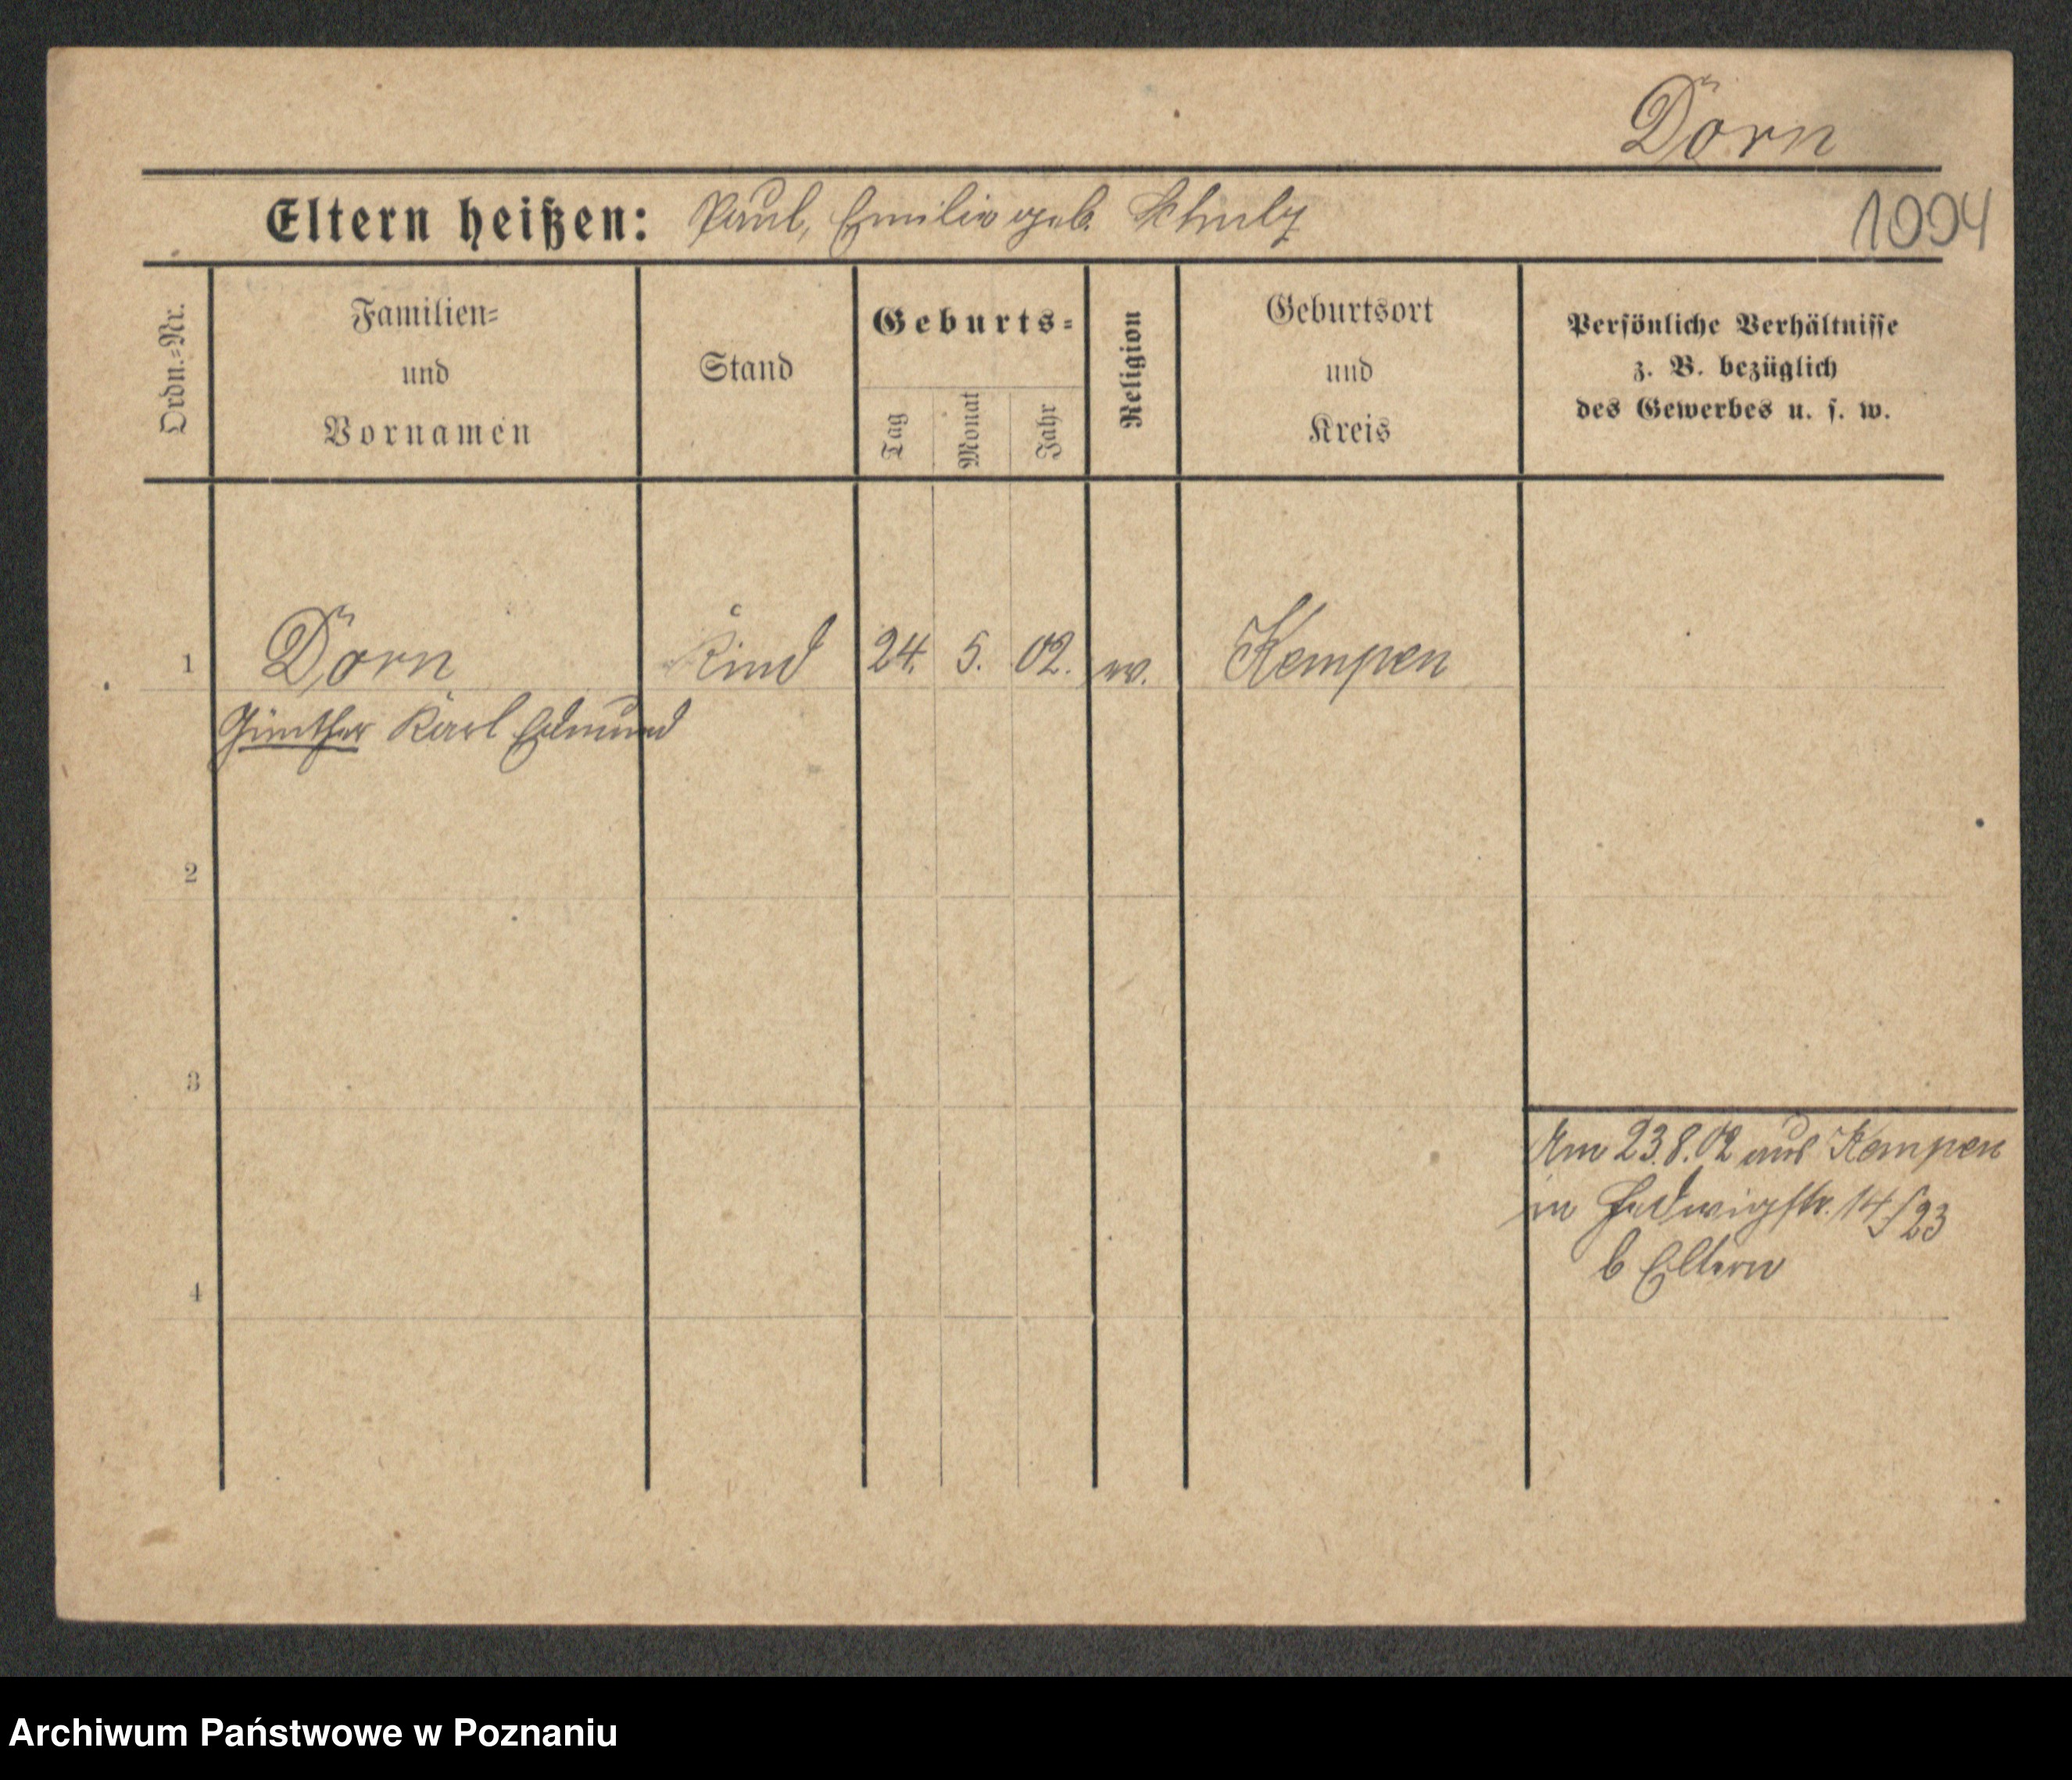 Dörn
Eltern heißen: Paul, Emilie geb. Schulz
1004
Ordn.=Nr.
Familien=
und
Vornamen
Stand
Geburts=
Tag
Monat
Jahr
Religion
Geburtsort
und
Kreis
Persönliche Verhältnisse
z. B. bezüglich
des Gewerbes u. s. w.
1 Dörn Kind 24. 5. 02. ev. Kempen
Günther Karl Edmund
2
3
Am 23.8.02 aus Kempen
in Hedwigstr. 14/23
b Eltern
4
Archiwum Państwowe w Poznaniu